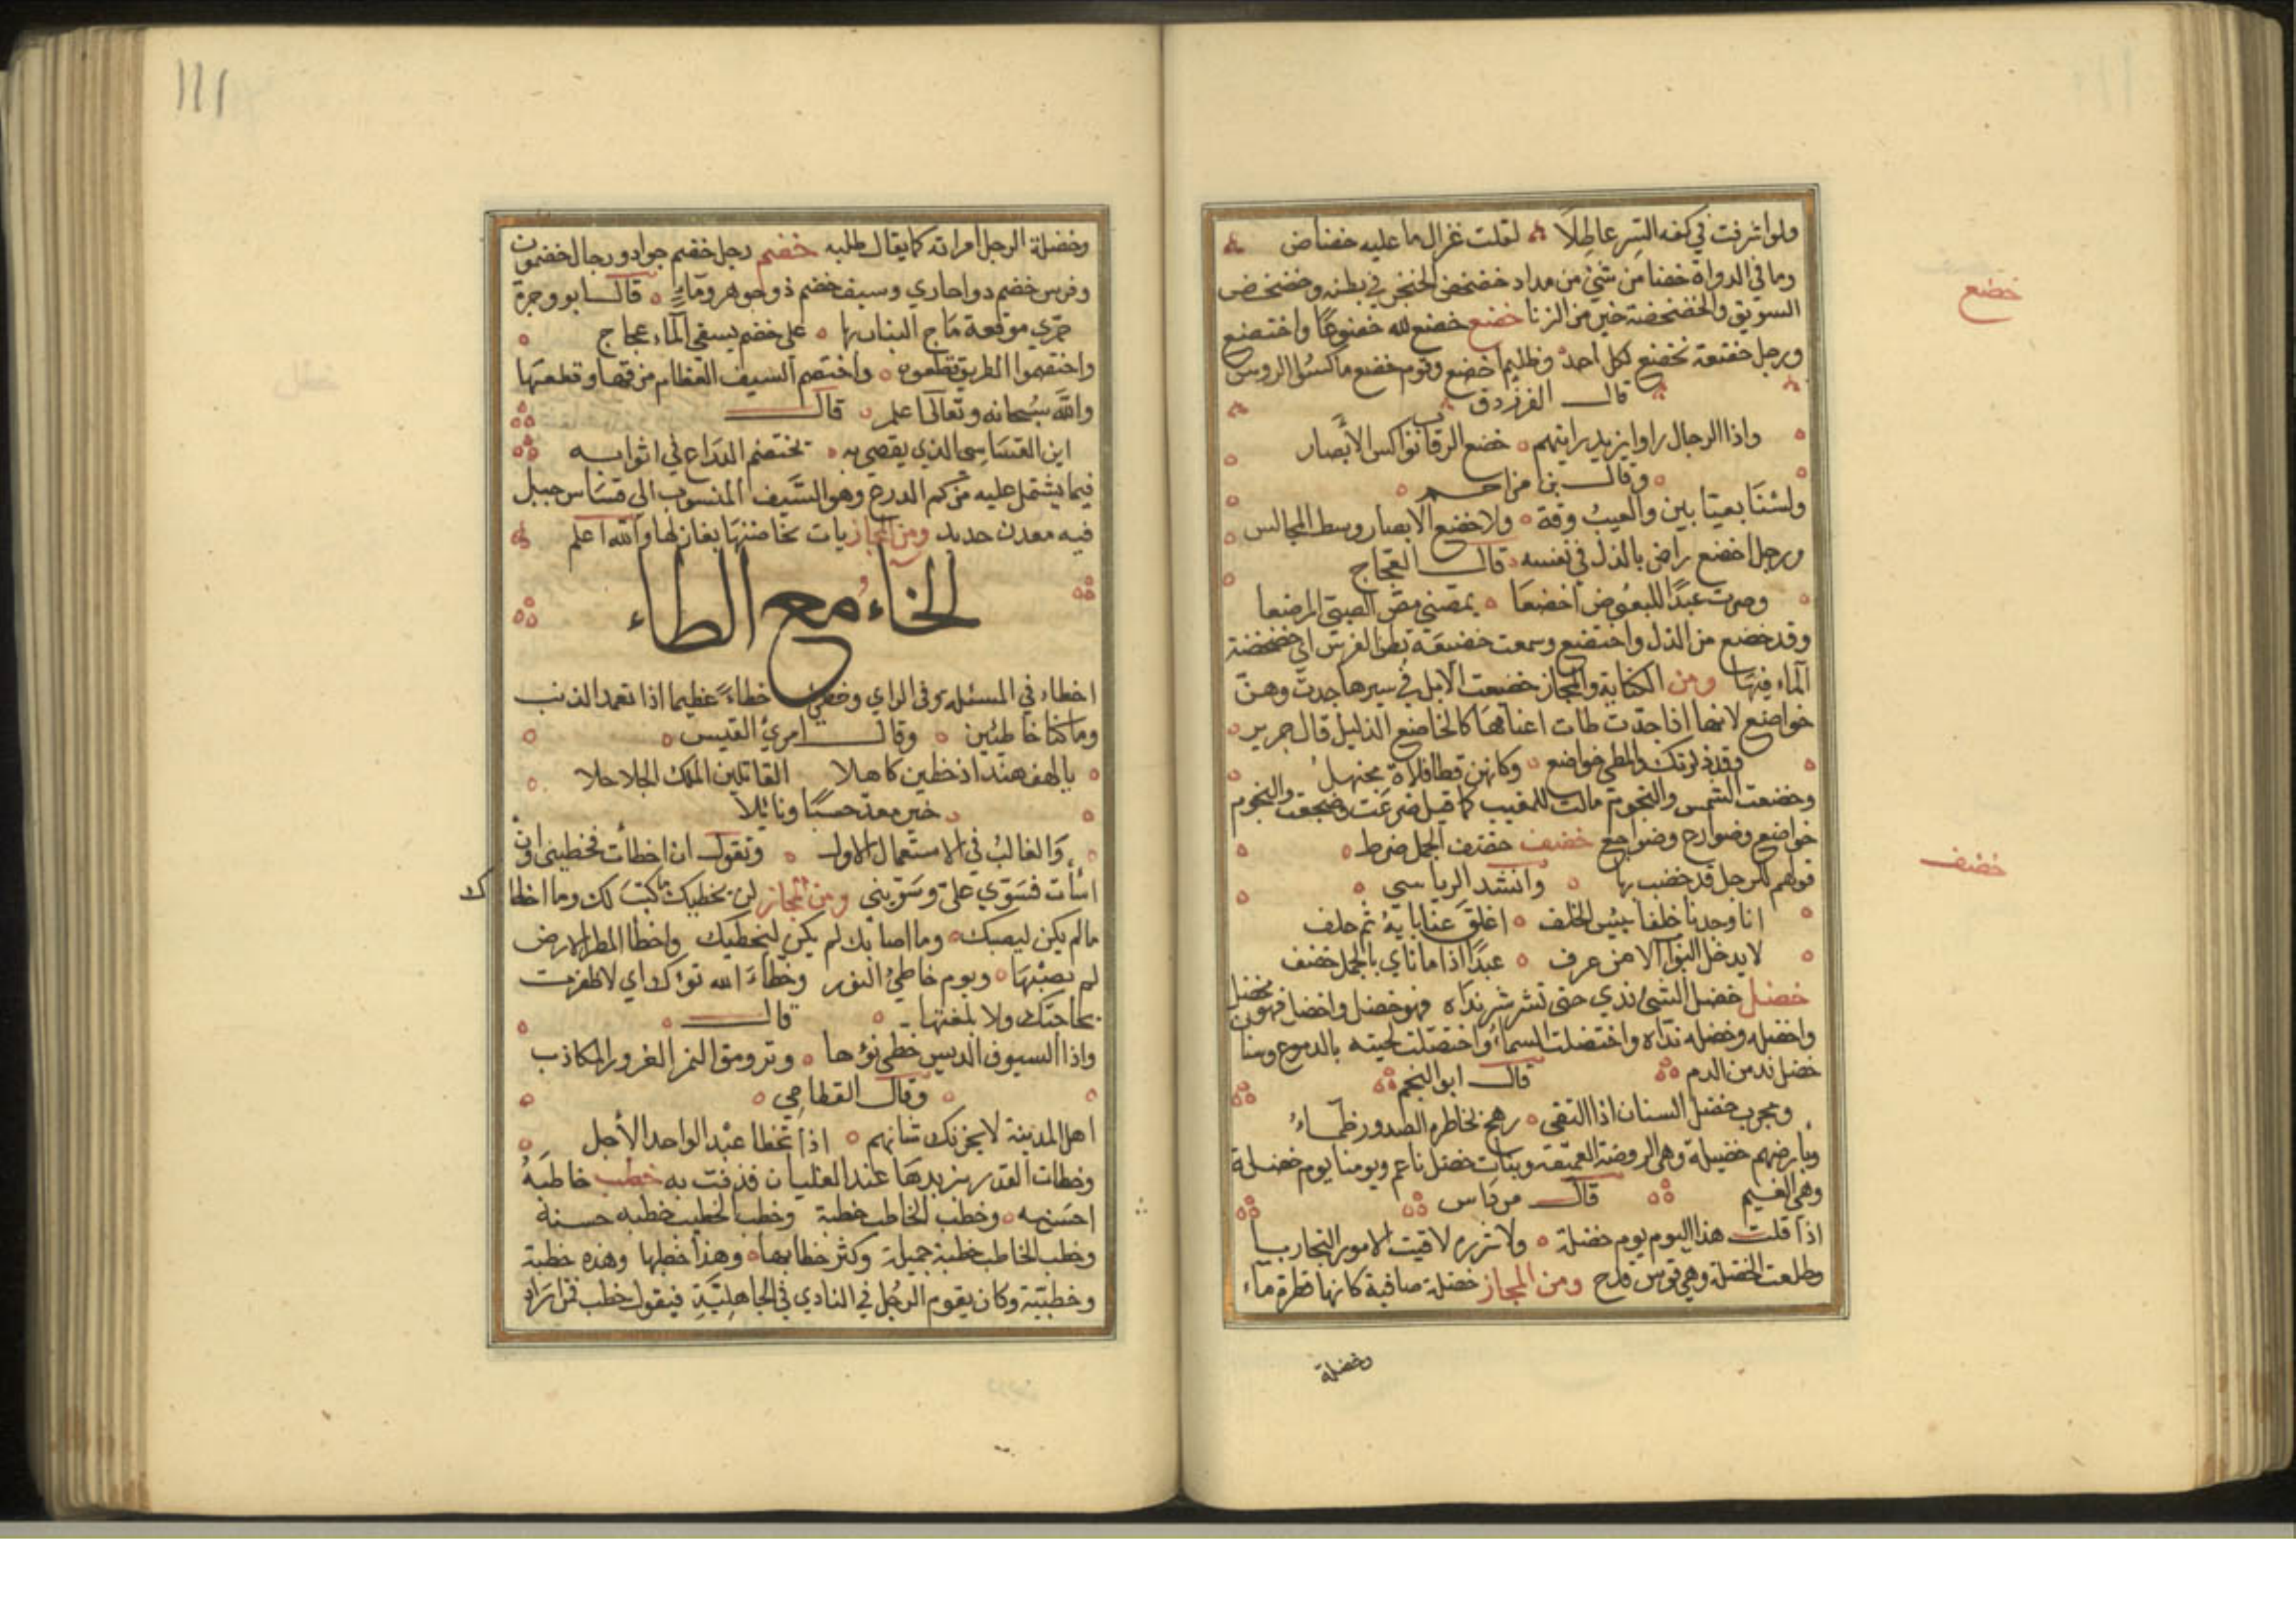 ولو اشرفت في كفه الستر عاطلا لقلت غزال ما عليه خضاض
وما في الدواة خضاض من شئ من مداد خضخض الخنجر في بطنه وخضخض
السويق والخضخضة خير من الزنا خضع خضع لله خضوعا واختضع
ورجل خضعة يخضع لكل احد وظليم اخضع وقوم خضع ناكسوا الروس
قال الفرزدق
واذا الرجال راوا يزيد رايتهم خضع الرقاب نواكس الابصار
وقال بن مزاحم
ولسنا بعيابين والعيب وقة ولا خضع الابصار وسط المجالس
ورجل اخضع راض بالذل في نفسه قال العجاج
وصرت عبدا للبعوض اخضعا يمصني مص الصبي المرضعا
وقد خضع من الذل واختضع وسمعت خضيعة بطن الفرس اي خضخضة
الماء فيها ومن الكناية والمجاز خضعت الابل في سيرها جدت وهن
خواضع لانها اذا جدت طات اعناقها كالخاضع الذليل قال جرير
ولقد ذكرتك والمطي خواضع وكانهن قطا فلاة مجهل
وخضعت الشمس والنجوم مالت للمغيب كما قيل ضرعت وضجعت والنجوم
خواضع وضوارع وضواجع خضف خضف الجمل ضرط
قولهم للرجل قد خضب بها وانشد الرياسى
انا وجدنا خلفا بيس الخلف اغلق عنا بابه ثم حلف
لا يدخل البواب الا من عرف عبدا اذا ما ناي بالجمل خضف
خضل خضل الشئ ندي حتى تشرشر نداه فهو خضل واخضل فهو مخضل
واخضله وخضله نداه واختضلت السماء واختضلت لحيته بالدموع وسنا
خضل ند من الدم قال ابو النجم
ومجرب خضل السنان اذا التقى رهج بخاطره الصدور ظماء
وبارضهم خضيلة وهي الروضة العميقة ونبات خضل ناعم ويومنا يوم خضلة
وهي الغيم قال مرداس
اذا قلت هذا اليوم يوم خضلة ولا شرزم لاقيت الامور النجاربا
وطلعت الخضلة وهي قوس قزح ومن المجاز خضلة صافية كانها قطرة ماء
وخضلة
خضع
خضف
١١١
وخضلة الرجل امراته كما يقال طلبه خضم رجل خضم جواد ورجال خضمون
وفرس خضم ذو احاري وسيف خضم ذو جوهر وماء قال ابو وجزة
حرى موقعة ماج البنان بها على خضم يسقى الماء عجاج
واختضموا الطريق قطعوه واختضم السيف العظام مر فيها وقطعها
والله سبحانه وتعالى اعلم قال
ابن القساسي الذي يقصى به يختضم الدراع في اثوابه
فيما يشتمل عليه من كم الدرع وهو السيف المنسوب الى قساس جبل
فيه معدن حديد ومن المجاز بات يخاضنها يغازلها والله اعلم
الخاء مع الطاء
اخطاء في المسئلة وفي الراي وخطئ خطاء عظيما اذا تعمد الذنب
وما كنا خاطئين وقال امرئ القيس
يا لهف هند اذ خطين كاهلا القاتلين الملك الحلاحلا
خير معد حسبا ونائلا
والغالب في الاستعمال الاول وتقول ان اخطأت فخطيني وان
اسأت فسوي علي وسويني ومن المجاز لن يخطيك ما كتب لك وما اخطاك
ما لم يكن ليصبك وما اصابك لم يكن ليخطيك واخطأ المطر الارض
لم يصبها ويوم خاطئ النور وخطاء الله نوءك اي لا ظفرت
بحاجتك ولا بلغتها قال
واذا السيوف الدبس خطي نوءها وترومق النمر الغرور الكاذب
وقال القطامي
اهل المدينة لا يحزنك شانهم اذا تخطا عبد الواحد الأجل
وخطات القدر بزبدها عند الغليان قذفت به خطب خاطبه
احسن به وخطب الخاطب خطبة وخطب الخطيب خطبه حسنة
وخطب الخاطب خطبة جميلة وكثر خطابها وهذا خطبها وهذه خطبة
وخطبتة وكان يقوم الرجل في النادي في الجاهلية فيقول خطب فمن اراد